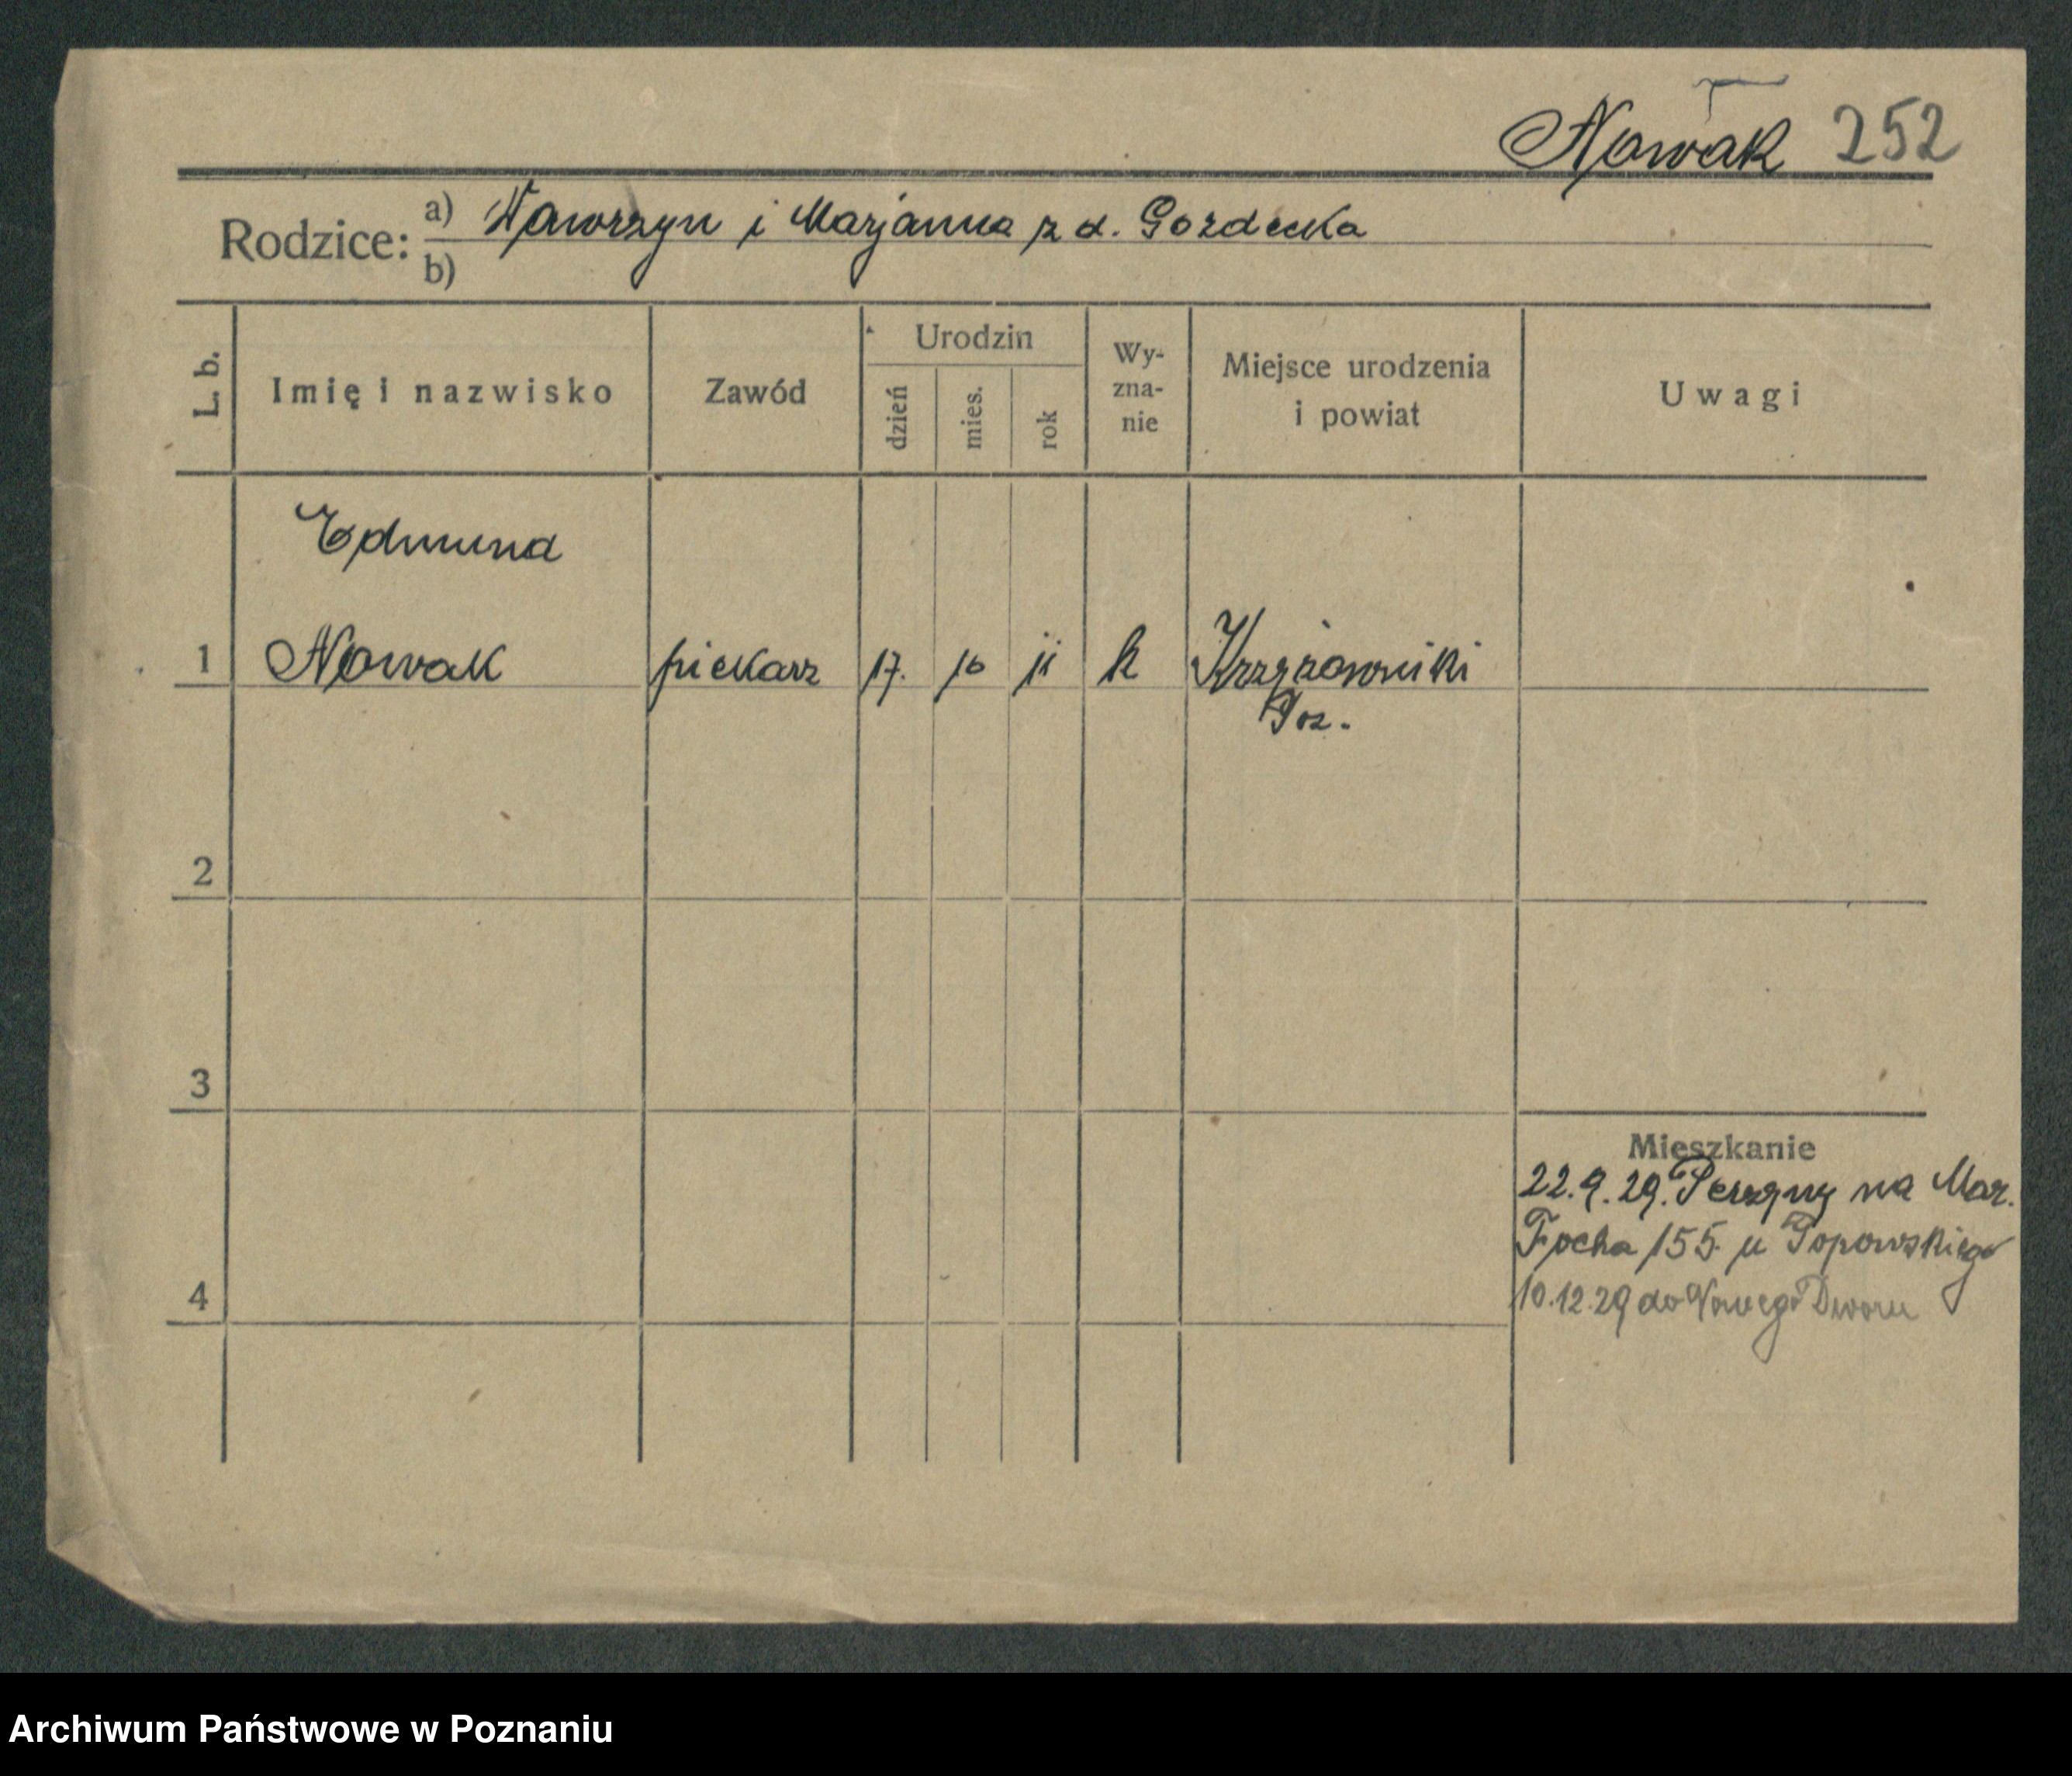 Nowak 252
Rodzice: a) Wawrzyn i Marjanna z d. Gozdecka
b)
L. b. Imię i nazwisko Zawód Urodzin dzień mies. rok Wy-zna-nie Miejsce urodzenia i powiat Uwagi
Edmund
1 Nowak piekarz 17. 10 11 k Krzyżowniki
Poz.
2
3
Mieszkanie
22.9.29. Perzyny na Mar.
Focha 155. u Popowskiego
4 10.12.29 do Nowego Dworu
Archiwum Państwowe w Poznaniu